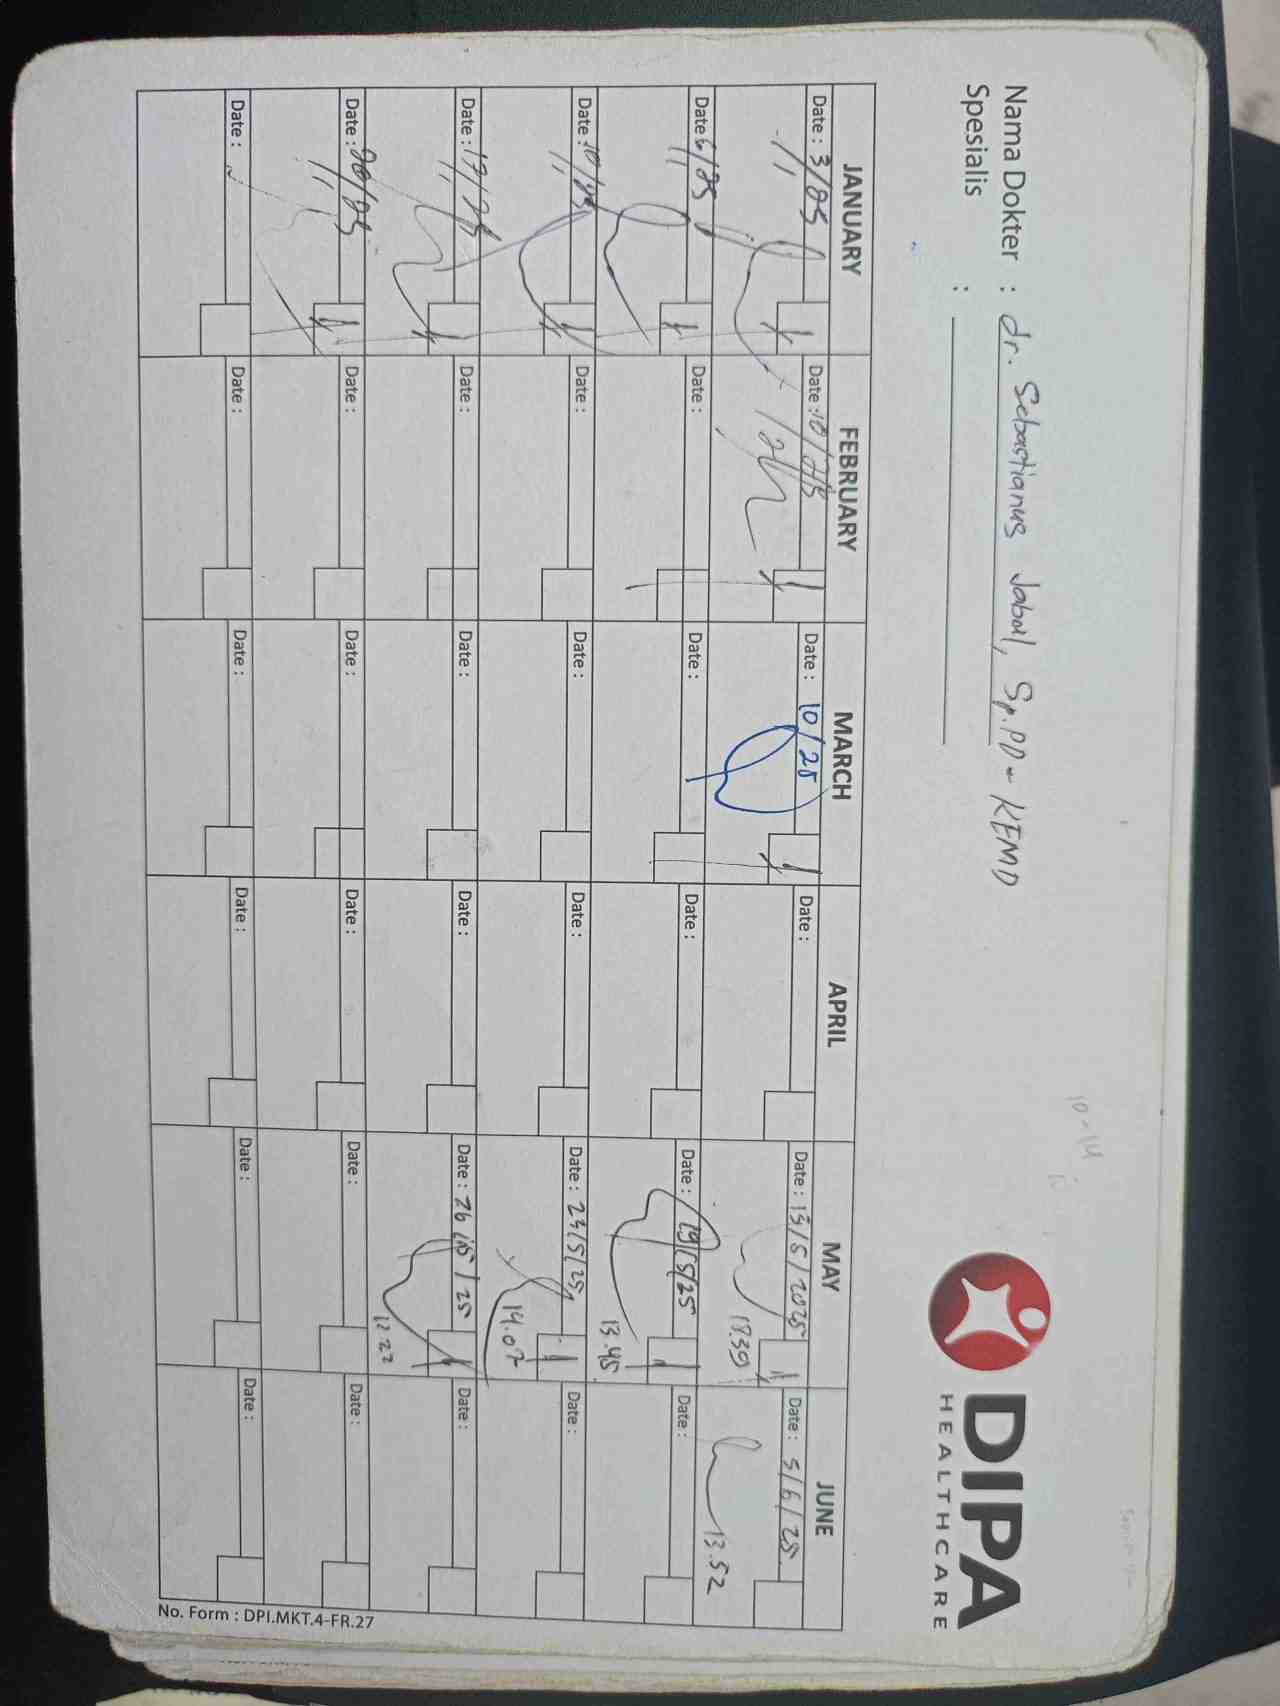 Nama Dokter : dr. Sebastianus Jobul, Sp.PD - KEMD
Spesialis :
DIPA
HEALTHCARE
JANUARY FEBRUARY MARCH APRIL MAY JUNE
Date : 3/25 Date : 10/25 Date : 10/25 Date : Date : 15/5/2025 Date : 5/6/25
18.30 13.52
Date : 6/25 Date : Date : Date : Date : 19/5/25 Date :
13.45
Date : 10/25 Date : Date : Date : Date : 23/5/25 Date :
14.07
Date : 17/25 Date : Date : Date : Date : 26/5/25 Date :
12.22
Date : 20/25 Date : Date : Date : Date : Date :
Date : Date : Date : Date : Date : Date :
No. Form : DPI.MKT.4-FR.27